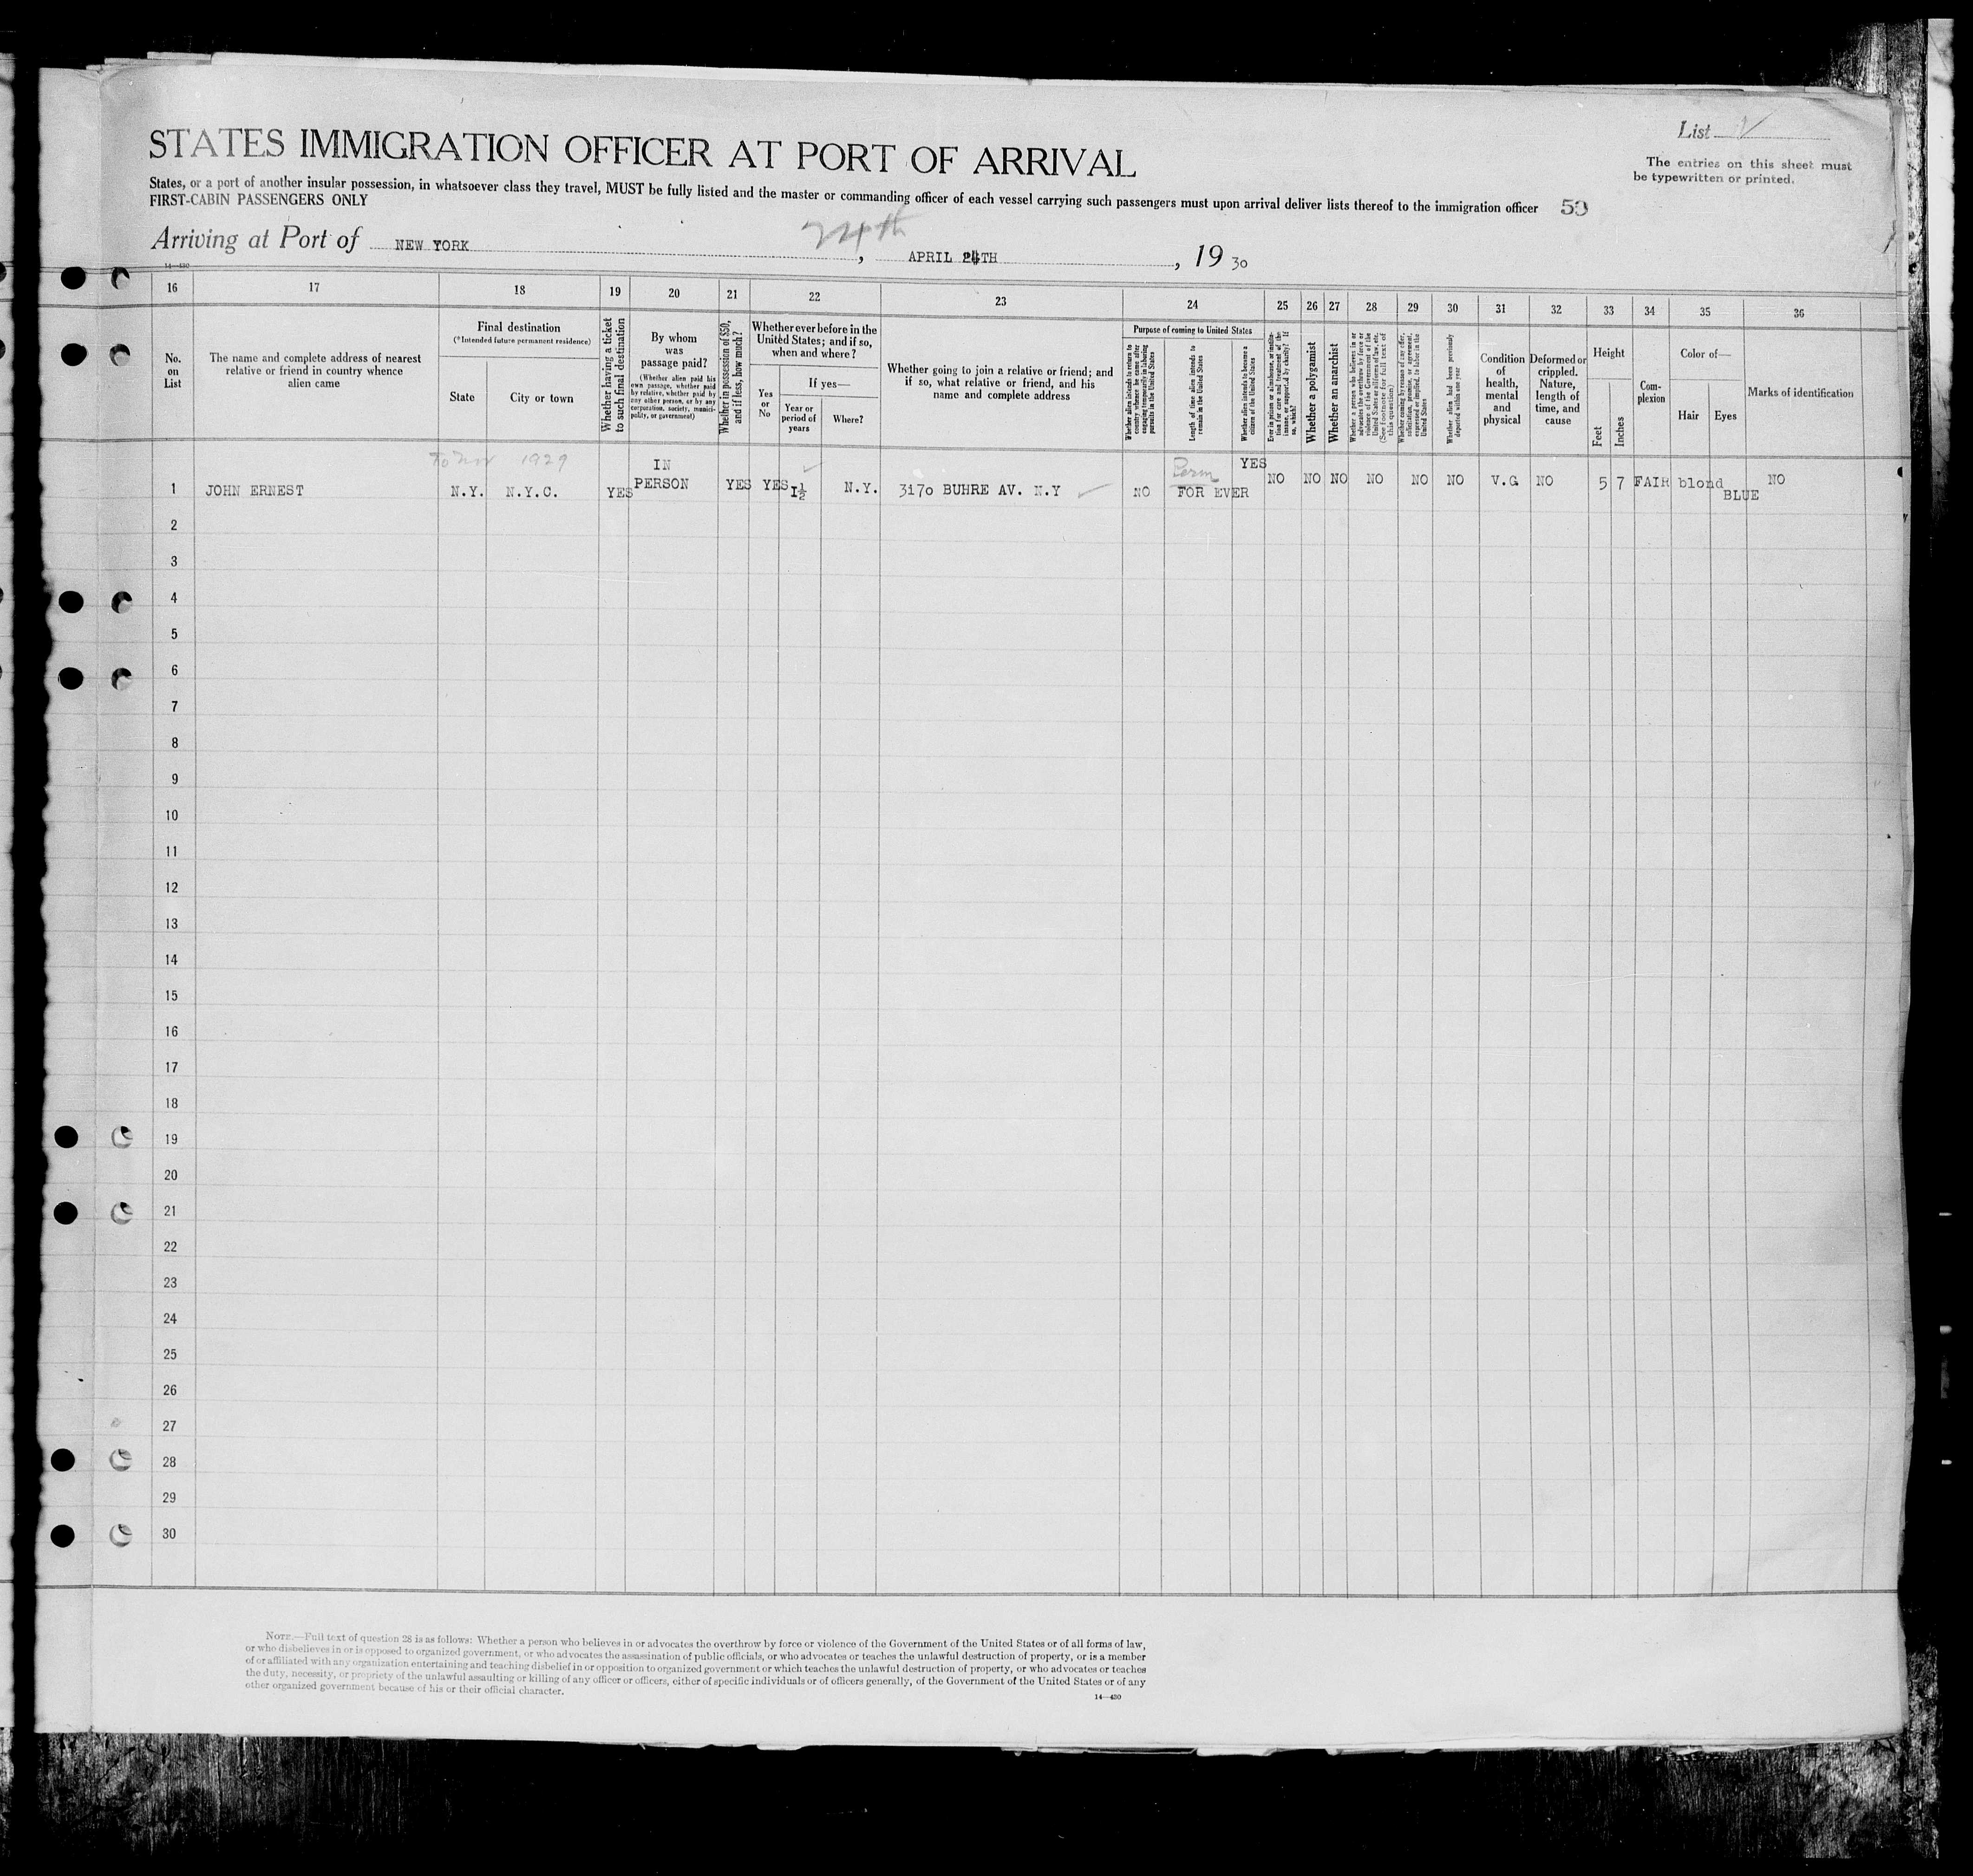 List
STATES IMMIGRATION OFFICER AT PORT OF ARRIVAL
The entries on this sheet must
be typewritten or printed.
States, or a port of another insular possession, in whatsoever class they travel, MUST be fully listed and the master or commanding officer of each vessel carrying such passengers must upon arrival deliver lists thereof to the immigration officer
FIRST-CABIN PASSENGERS ONLY
24th
Arriving at Port of NEW YORK, APRIL 24TH, 19 30
14—430
16 17 18 19 20 21 22 23 24 25 26 27 28 29 30 31 32 33 34 35 36
No. on List
The name and complete address of nearest relative or friend in country whence alien came
Final destination
(*Intended future permanent residence)
State
City or town
Whether having a ticket to such final destination
By whom was passage paid?
(Whether alien paid his own passage, whether paid by relative, whether paid by any other person, or by any corporation, society, municipality, or government)
Whether in possession of $50, and if less, how much?
Whether ever before in the United States; and if so, when and where?
Yes or No
If yes—
Year or period of years
Where?
Whether going to join a relative or friend; and if so, what relative or friend, and his name and complete address
Purpose of coming to United States
Whether alien intends to return to country whence he came after engaging temporarily in laboring pursuits in the United States
Length of time alien intends to remain in the United States
Whether alien intends to become a citizen of the United States
Ever in prison or almshouse, or institution for care and treatment of the insane, or supported by charity? If so, which?
Whether a polygamist
Whether an anarchist
Whether a person who believes in or advocates the overthrow by force or violence of the Government of the United States or all forms of law, etc. (See footnote for full text of this question)
Whether coming by reason of any offer, solicitation, promise, or agreement, expressed or implied, to labor in the United States
Whether alien had been previously deported within one year
Condition of health, mental and physical
Deformed or crippled. Nature, length of time, and cause
Height
Feet
Inches
Complexion
Color of—
Hair
Eyes
Marks of identification
1929
IN
Perm
YES
1 JOHN ERNEST N.Y. N.Y.C. YES PERSON YES YES I½ N.Y. 3170 BUHRE AV. N.Y NO FOR EVER NO NO NO NO NO NO V.G NO 5 7 FAIR blond BLUE NO
2
3
4
5
6
7
8
9
10
11
12
13
14
15
16
17
18
19
20
21
22
23
24
25
26
27
28
29
30
NOTE.—Full text of question 28 is as follows: Whether a person who believes in or advocates the overthrow by force or violence of the Government of the United States or of all forms of law,
or who disbelieves in or is opposed to organized government, or who advocates the assassination of public officials, or who advocates or teaches the unlawful destruction of property, or is a member
of or affiliated with any organization entertaining and teaching disbelief in or opposition to organized government or which teaches the unlawful destruction of property, or who advocates or teaches
the duty, necessity, or propriety of the unlawful assaulting or killing of any officer or officers, either of specific individuals or of officers generally, of the Government of the United States or of any
other organized government because of his or their official character.
14—430